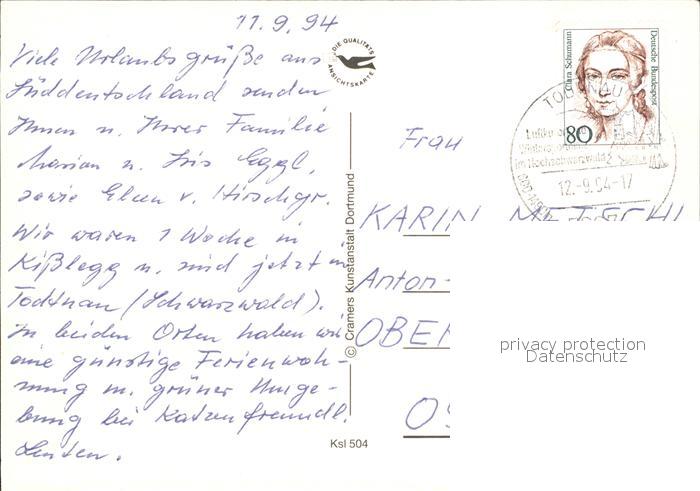 11.9.94
Viele Urlaubsgrüße aus
Süddeutschland senden
Ihnen u. Ihrer Familie
Marian u. Iris Eggl,
sowie Elien v. Hirschgr.
Wir waren 1 Woche in
Kißlegg u. sind jetzt in
Todtnau (Schwarzwald).
In beiden Orten haben wir
eine günstige Ferienwoh-
nung m. grüner Umge-
bung bei Katzenfreundl.
Leuten.
DIE QUALITÄTS
ANSICHTSKARTE
© Cramers Kunstanstalt Dortmund
Ksl 504
Clara Schumann
Deutsche Bundespost
80
TODTNAU
im Hochschwarzwald
12.-9.94-17
Frau
KARIN
Anton-
OBER
privacy protection
Datenschutz